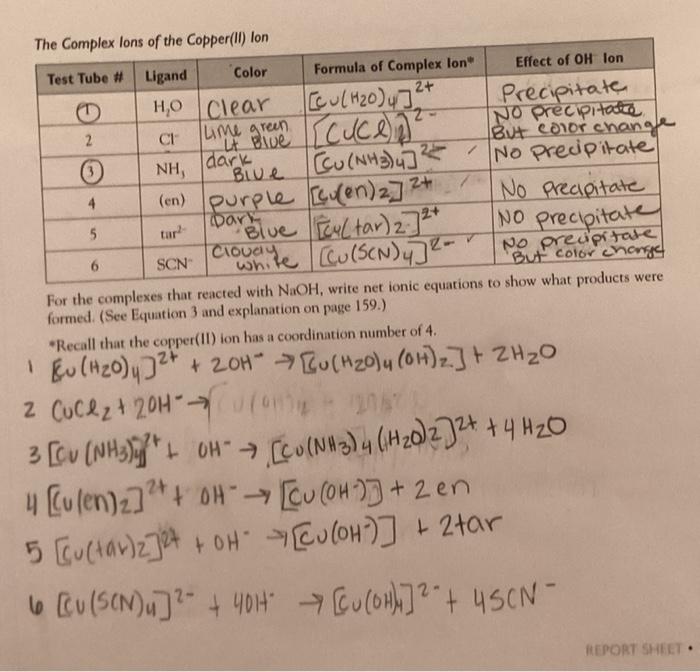 The Complex Ions of the Copper(II) Ion
Test Tube # Ligand Color Formula of Complex Ion* Effect of OH⁻ Ion
1 H₂O Clear [Cu(H2O)4]2+ Precipitate
2 Cl⁻ Lime green Lt Blue [CuCl4]2- NO precipitate But color change
3 NH₃ dark Blue [Cu(NH3)4]2+ No precipitate
4 (en) purple [Cu(en)2]2+ No precipitate
5 tar²⁻ Dark Blue [Cu(tar)2]2+ NO precipitate
6 SCN⁻ Cloudy white [Cu(SCN)4]2- No precipitate But color change
For the complexes that reacted with NaOH, write net ionic equations to show what products were
formed. (See Equation 3 and explanation on page 159.)
*Recall that the copper(II) ion has a coordination number of 4.
1 [Cu(H2O)4]2+ + 2OH- → [Cu(H2O)4(OH)2] + 2H2O
2 CuCl2 + 2OH- →
3 [Cu(NH3)4]2+ + OH- → [Cu(NH3)4(H2O)2]2+ + 4H2O
4 [Cu(en)2]2+ + OH- → [Cu(OH-)] + 2en
5 [Cu(tar)2]2+ + OH- → [Cu(OH-)] + 2tar
6 [Cu(SCN)4]2- + 4OH- → [Cu(OH)4]2- + 4SCN-
REPORT SHEET •